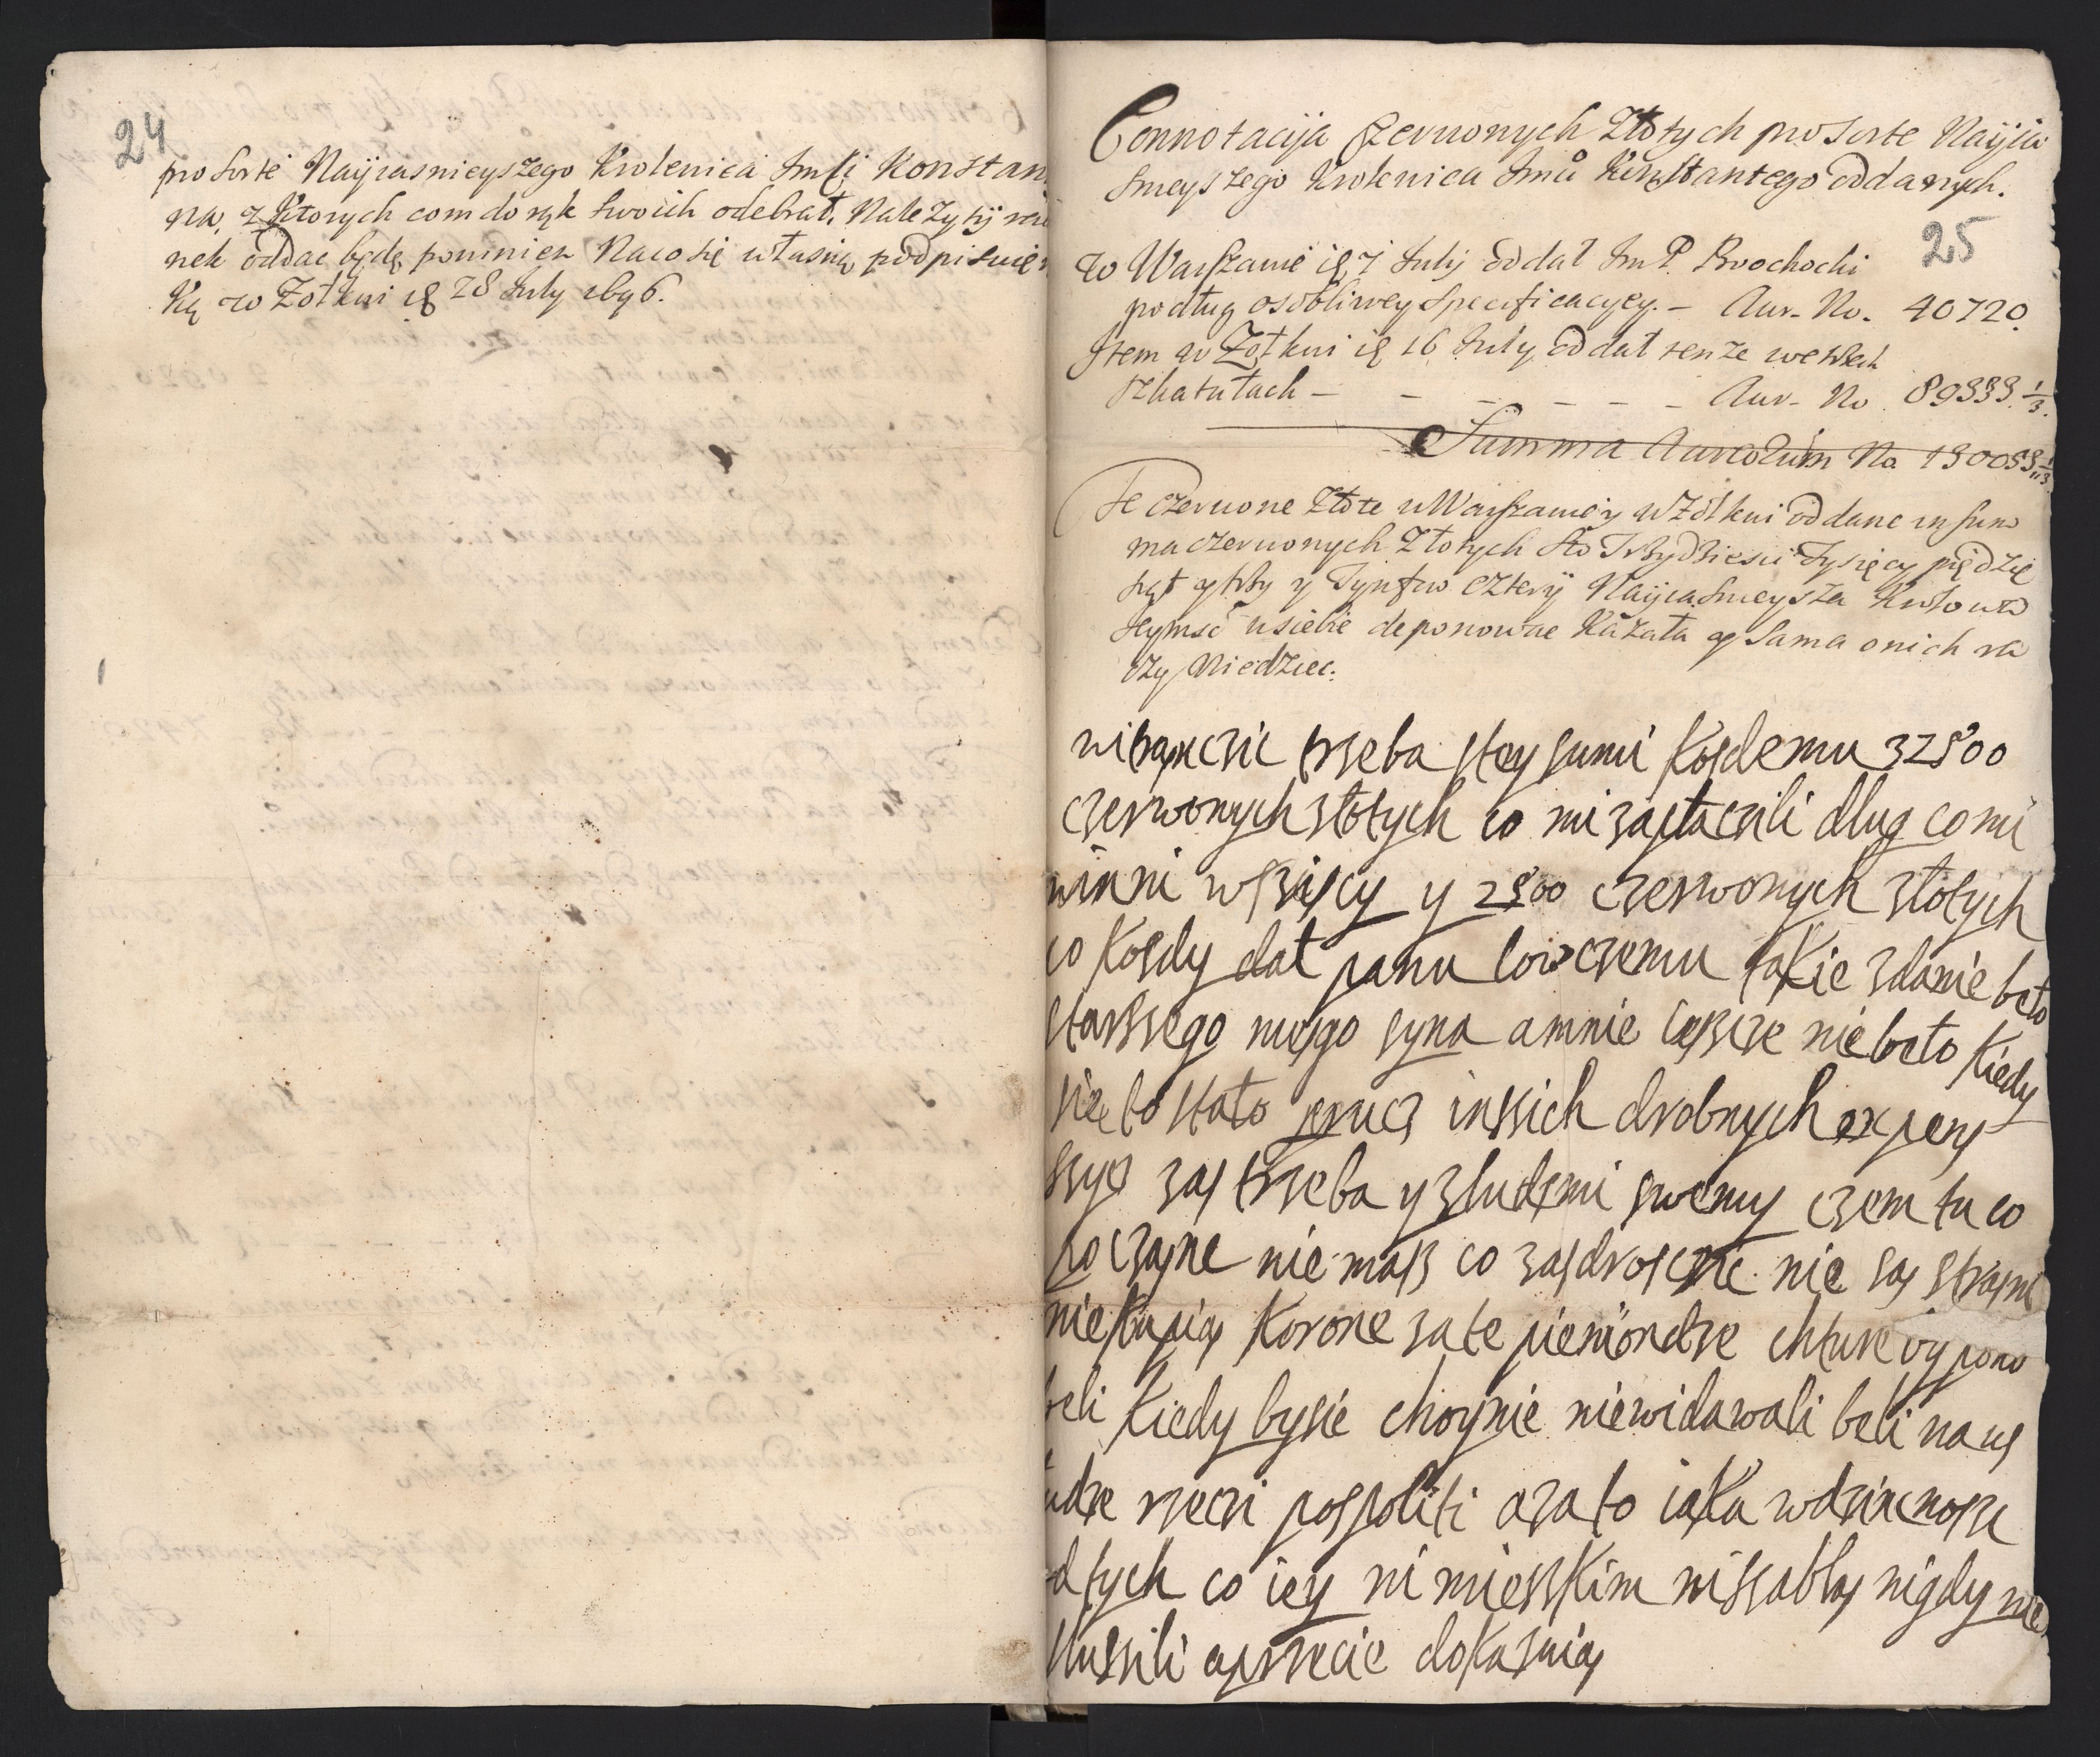 24
pro sorte Nayiasnieyszego Krolewica Jmści Konstan
na, z Ktorych com do rąk swoich odebrał. Należyty
nek oddac będę powinien Naco się własną podpisuię
ką w Żołkwi d 28 July 1696.
Connotacija Czerwonych Złotych pro sorte Nayia
snieyszego Krolewica Jmci Konstantego oddanych.
25
w Warszawie d 7 July oddał Jm P. Brochocki
podług osobliwey Specificacyey. – Aur. No. 40720.
Item w Żołkwi d 16 July oddał tenże we
szkatułach – – – – – – – Aur. No. 89333. 1/3.
Summa Aureorum No. 130053. 1/3.
Te czerwone Złote w Warszawie y w Żółkwi oddane in sum
ma czerwonych Złotych Sto Trzydziesci Tysięcy pięcdzie
siąt y trzy y Tynfow cztery Nayiasnieysza Krolowa
Jeymsc u siebie deponowac Kazała y Sama o nich ra
czy Wiedziec.
witrąnczic trzeba stey sumi Kosdemu 32500
czerwonych złotych co mi zapłaczili dlug co mi
winni wsziscy y 2500 czerwonych złotych
co Kosdy dał panu lowczemu takie zdanie beło
starszego mego syna a mnie ieszcze nie beło Kiedy
sie to stało prucz inssich drobnych expens
szyc zas trzeba y zludzmi swemy czem tu co
poczasne nie masz co zasdrosczic nie sas strasni
nie Kupias Korone za te pieniondze chture vy pono
beli Kiedy bysie choynie niewidawali beli na us
ludze rzeczi pospoliti a za to iaka wdziecnosc
od tych co iey ni mieszkim ni szablas nigdy nie
sluszili a przecie dokasuias